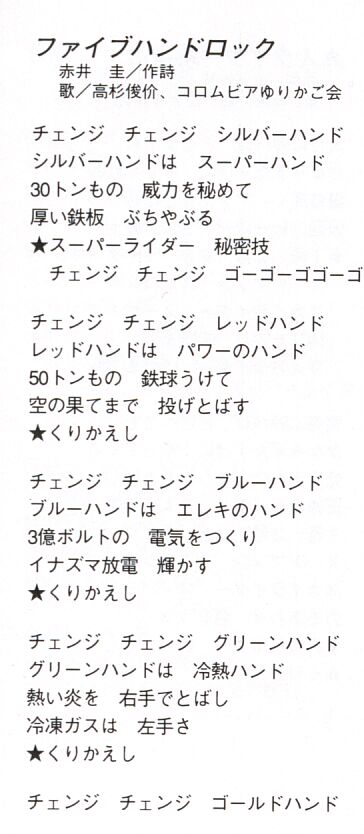 ファイブハンドロック
赤井　圭／作詩
歌／高杉俊价、コロムビアゆりかご会
チェンジ　チェンジ　シルバーハンド
シルバーハンドは　スーパーハンド
30トンもの　威力を秘めて
厚い鉄板　ぶちやぶる
★スーパーライダー　秘密技
チェンジ　チェンジ　ゴーゴーゴゴーゴ
チェンジ　チェンジ　レッドハンド
レッドハンドは　パワーのハンド
50トンもの　鉄球うけて
空の果てまで　投げとばす
★くりかえし
チェンジ　チェンジ　ブルーハンド
ブルーハンドは　エレキのハンド
3億ボルトの　電気をつくり
イナズマ放電　輝かす
★くりかえし
チェンジ　チェンジ　グリーンハンド
グリーンハンドは　冷熱ハンド
熱い炎を　右手でとばし
冷凍ガスは　左手さ
★くりかえし
チェンジ　チェンジ　ゴールドハンド